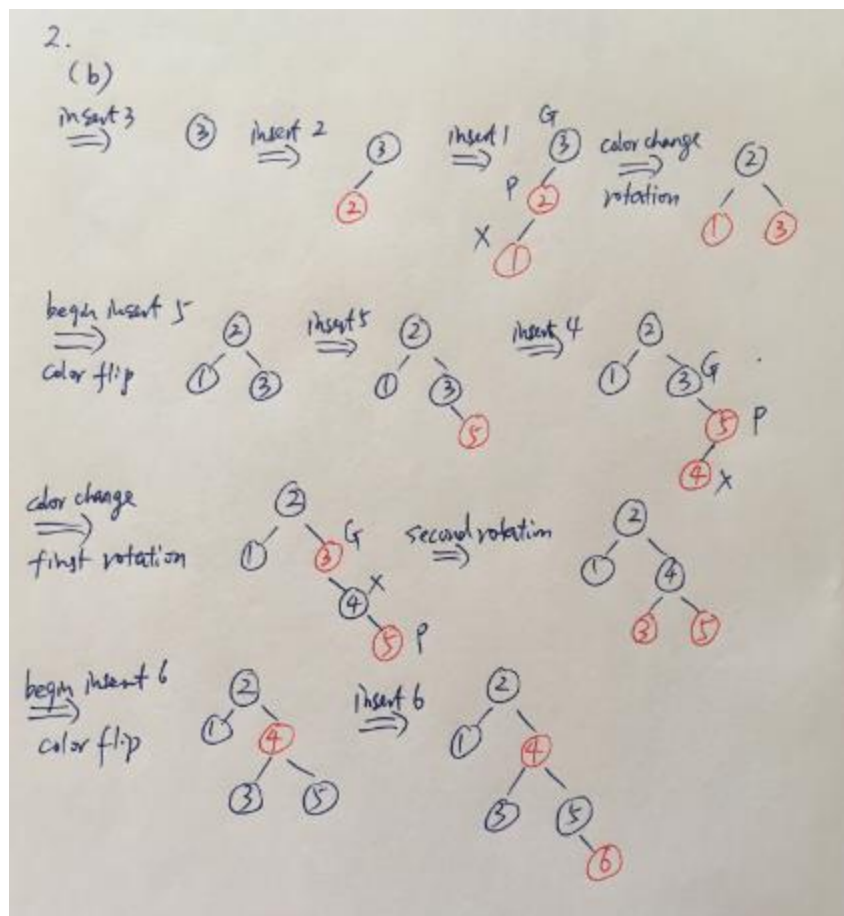 2.
(b)
insert 3
3
insert 2
3
2
insert 1
G
3
P
2
X
1
color change
rotation
2
1 3
begin insert 5
color flip
2
1 3
insert 5
2
1 3
5
insert 4
2
1 3 G
5 P
4 X
color change
first rotation
2
1 3 G
4 X
5 P
second rotation
2
1 4
3 5
begin insert 6
color flip
2
1 4
3 5
insert 6
2
1 4
3 5
6